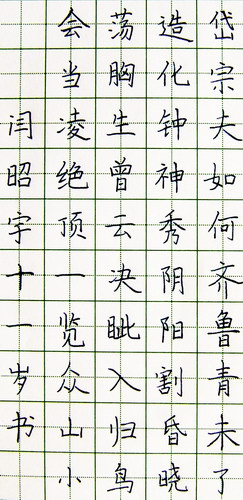 岱宗夫如何齐鲁青未了
造化钟神秀阴阳割昏晓
荡胸生曾云决眦入归鸟
会当凌绝顶一览众山小
闫昭宇十一岁书